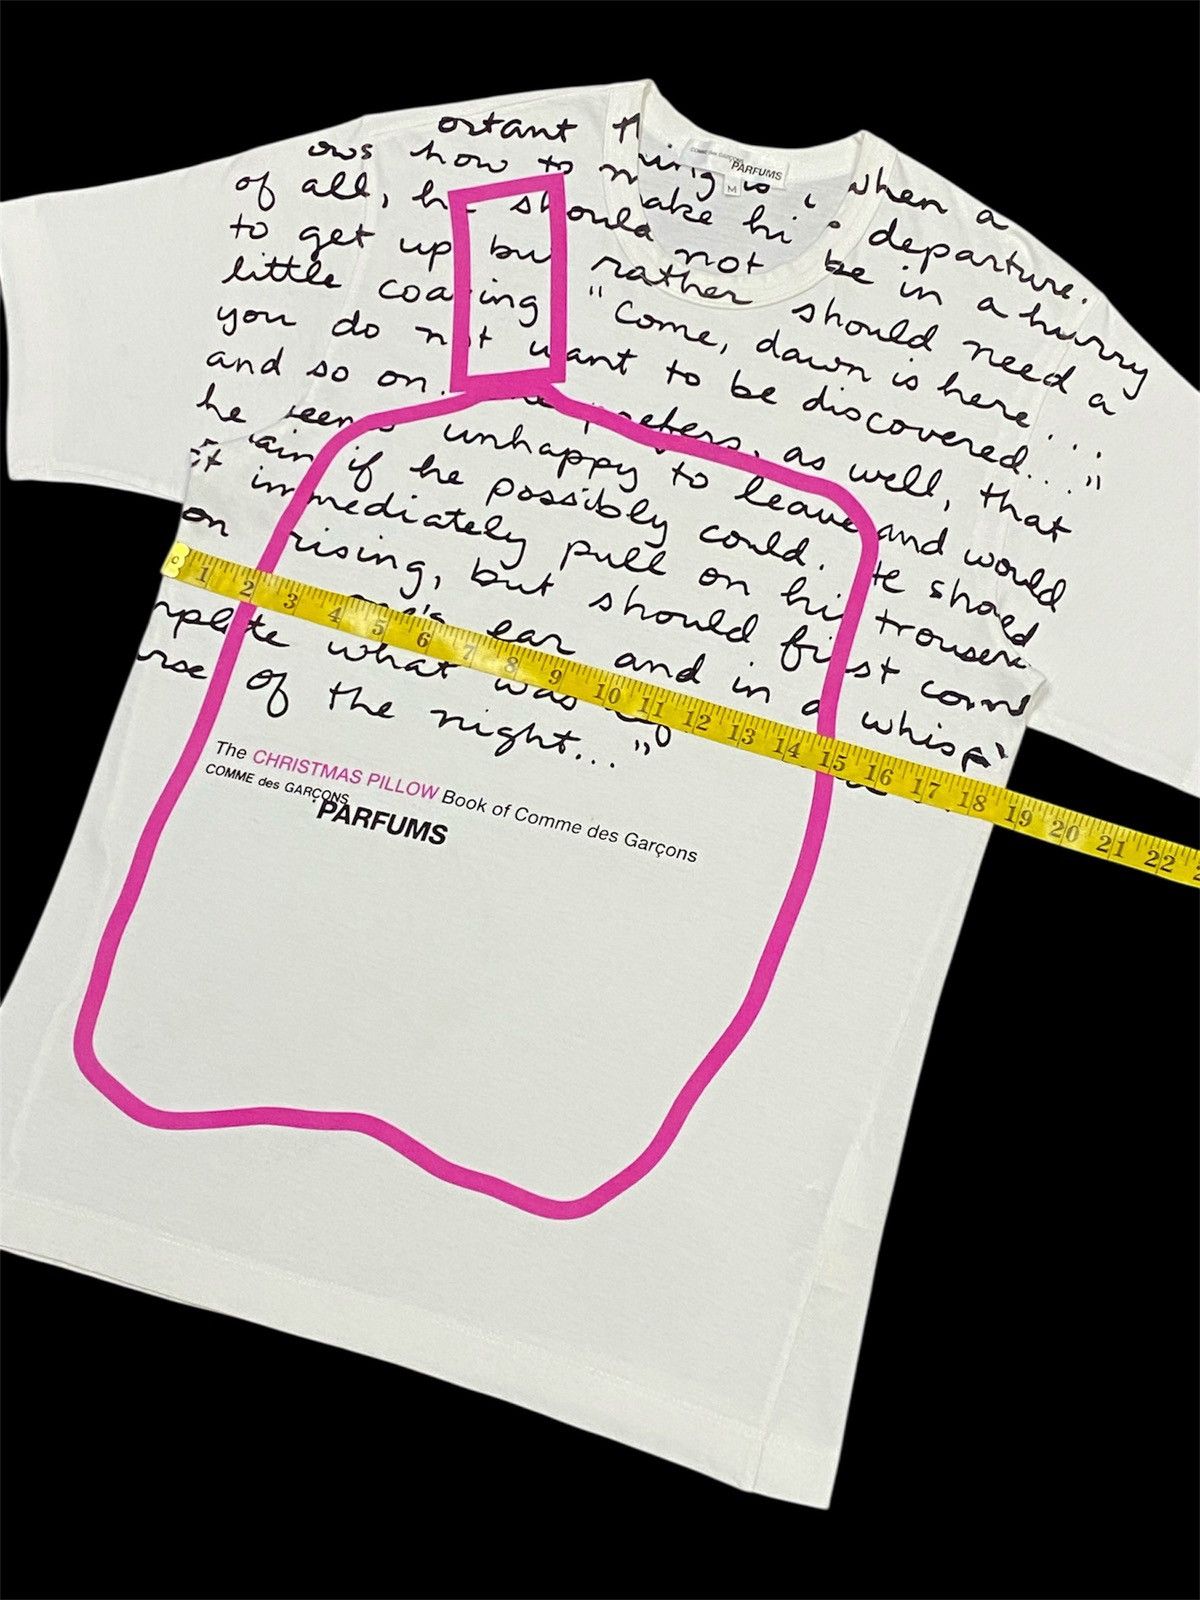 ortant thing is when a
ows how to make hi departure.
of all, he should not be in a hurry
to get up but rather should need a
little coaxing "Come, dawn is here...
you do not want to be discovered..."
and so on. prefers, as well, that
he seems unhappy to leave and would
ain if he possibly could. He should
t immediately pull on hi trousers
on rising, but should first come
one's ear and in a whisp
mplete what was
rse of the night..."
The CHRISTMAS PILLOW Book of Comme des Garçons
COMME des GARÇONS
PARFUMS
COMME des GARÇONS
PARFUMS
M
1 2 3 4 5 6 7 8 9 10 11 12 13 14 15 16 17 18 19 20 21 22